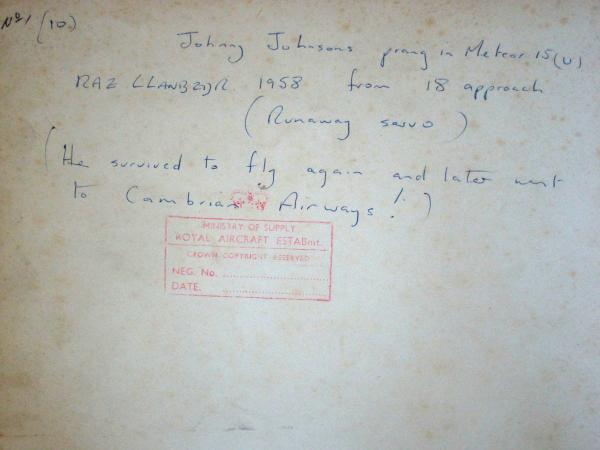 Nº 1 (10)
Johnny Johnsons prang in Meteor 15(U)
RAE LLANBEDR 1958 from 18 approach
(Runaway servo)
(He survived to fly again and later went
to Cambrian Airways!)
MINISTRY OF SUPPLY
ROYAL AIRCRAFT ESTABmt.
CROWN COPYRIGHT RESERVED
NEG. No. ....................
DATE. ....................